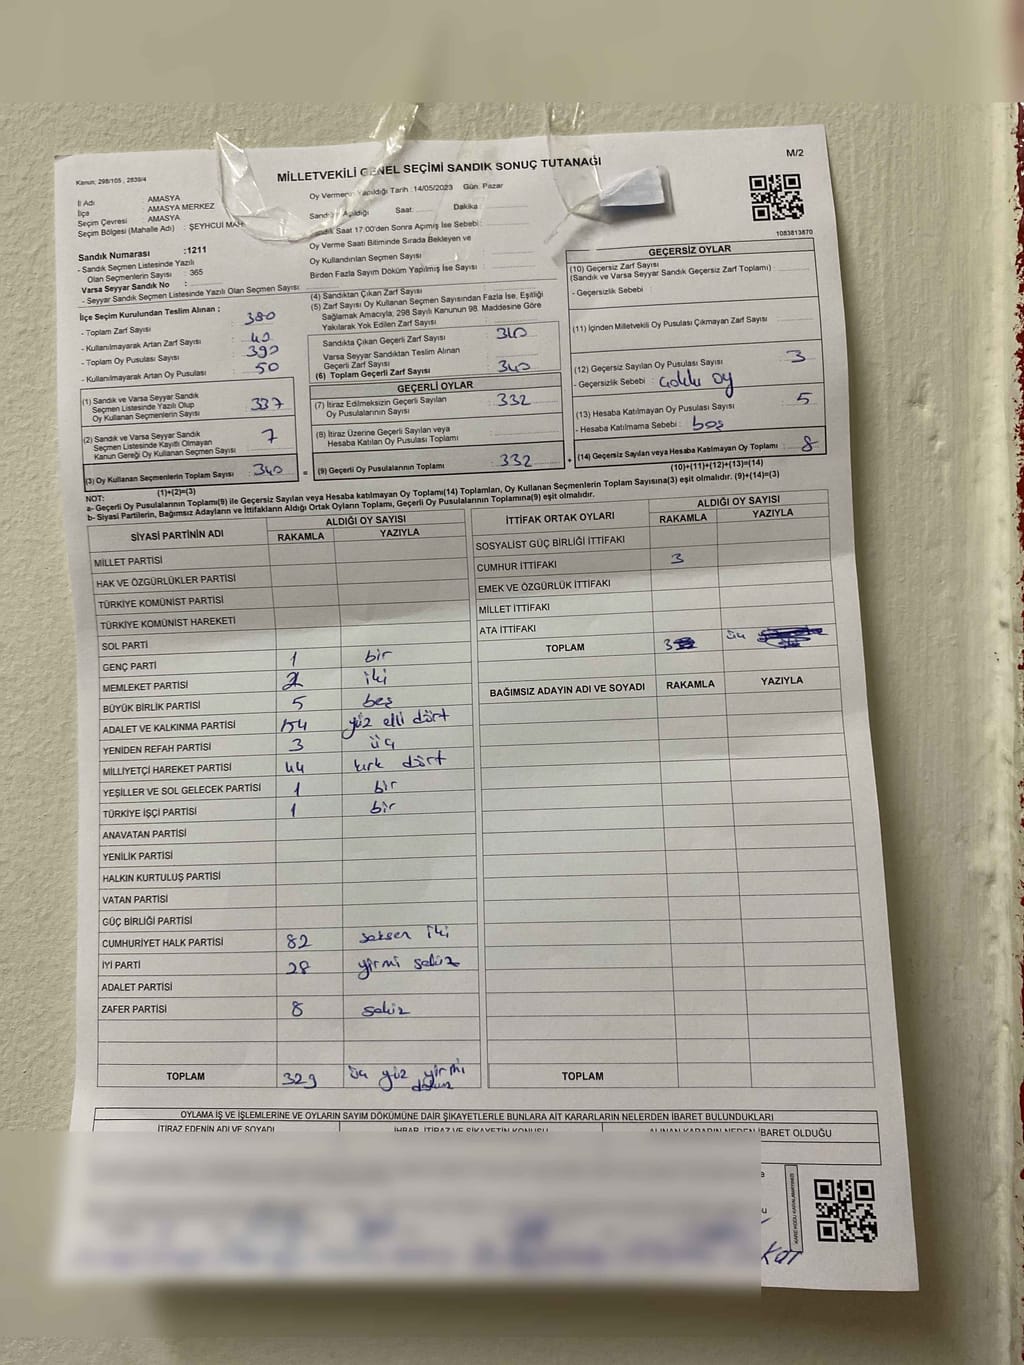 M/2
Kanun; 298/105 , 2839/4
MİLLETVEKİLİ GENEL SEÇİMİ SANDIK SONUÇ TUTANAĞI
İl Adı : AMASYA
İlça : AMASYA MERKEZ
Seçim Çevresi : AMASYA
Seçim Bölgesi (Mahalle Adı) : ŞEYHCUİ MAH
Sandık Numarası :1211
- Sandık Seçmen Listesinde Yazılı
Olan Seçmenlerin Sayısı : 365
Varsa Seyyar Sandık No :
- Seyyar Sandık Seçmen Listesinde Yazılı Olan Seçmen Sayısı
Oy Vermenin Yapıldığı Tarih :14/05/2023 Gün. Pazar
Sandığın Açıldığı Saat: Dakika :
Sandık Saat 17:00'den Sonra Açımış İse Sebebi:
Oy Verme Saati Bitiminde Sırada Bekleyen ve
Oy Kullandırılan Seçmen Sayısı
Birden Fazla Sayım Döküm Yapılmış İse Sayısı
1083813870
İlçe Seçim Kurulundan Teslim Alınan ;
- Toplam Zarf Sayısı : 380
- Kullanılmayarak Artan Zarf Sayısı : 40
- Toplam Oy Pusulası Sayısı : 390
- Kullanılmayarak Artan Oy Pusulası : 50
(1) Sandık ve Varsa Seyyar Sandık
Seçmen Listesinde Yazılı Olup
Oy Kullanan Seçmenlerin Sayısı : 337
(2) Sandık ve Varsa Seyyar Sandık
Seçmen Listesinde Kayıtlı Olmayan
Kanun Gereği Oy Kullanan Seçmen Sayısı : 7
(3) Oy Kullanan Seçmenlerin Toplam Sayısı : 340
(1)+(2)=(3)
(4) Sandıktan Çıkan Zarf Sayısı
(5) Zarf Sayısı Oy Kullanan Seçmen Sayısından Fazla İse, Eşitliği
Sağlamak Amacıyla, 298 Sayılı Kanunun 98. Maddesine Göre
Yakılarak Yok Edilen Zarf Sayısı
Sandıkta Çıkan Geçerli Zarf Sayısı : 340
Varsa Seyyar Sandıktan Teslim Alınan
Geçerli Zarf Sayısı
(6) Toplam Geçerli Zarf Sayısı : 340
GEÇERLİ OYLAR
(7) İtiraz Edilmeksizin Geçerli Sayılan
Oy Pusulalarının Sayısı : 332
(8) İtiraz Üzerine Geçerli Sayılan veya
Hesaba Katılan Oy Pusulası Toplamı
= (9) Geçerli Oy Pusulalarının Toplamı : 332
GEÇERSİZ OYLAR
(10) Geçersiz Zarf Sayısı
(Sandık ve Varsa Seyyar Sandık Geçersiz Zarf Toplamı)
- Geçersizlik Sebebi
(11) İçinden Milletvekili Oy Pusulası Çıkmayan Zarf Sayısı
(12) Geçersiz Sayılan Oy Pusulası Sayısı : 3
- Geçersizlik Sebebi : oy
(13) Hesaba Katılmayan Oy Pusulası Sayısı : 5
- Hesaba Katılmama Sebebi : boş
+ (14) Geçersiz Sayılan veya Hesaba Katılmayan Oy Toplamı : 8
(10)+(11)+(12)+(13)=(14)
NOT:
a- Geçerli Oy Pusulalarının Toplamı(9) ile Geçersiz Sayılan veya Hesaba katılmayan Oy Toplamı(14) Toplamları, Oy Kullanan Seçmenlerin Toplam Sayısına(3) eşit olmalıdır. (9)+(14)=(3)
b- Siyasi Partilerin, Bağımsız Adayların ve İttifakların Aldığı Ortak Oyların Toplamı, Geçerli Oy Pusulalarının Toplamına(9) eşit olmalıdır.
SİYASİ PARTİNİN ADI ALDIĞI OY SAYISI
RAKAMLA YAZIYLA
MİLLET PARTİSİ
HAK VE ÖZGÜRLÜKLER PARTİSİ
TÜRKİYE KOMÜNİST PARTİSİ
TÜRKİYE KOMÜNİST HAREKETİ
SOL PARTİ
GENÇ PARTİ 1 bir
MEMLEKET PARTİSİ 2 iki
BÜYÜK BİRLİK PARTİSİ 5 beş
ADALET VE KALKINMA PARTİSİ 154 yüz elli dört
YENİDEN REFAH PARTİSİ 3 üç
MİLLİYETÇİ HAREKET PARTİSİ 44 kırk dört
YEŞİLLER VE SOL GELECEK PARTİSİ 1 bir
TÜRKİYE İŞÇİ PARTİSİ 1 bir
ANAVATAN PARTİSİ
YENİLİK PARTİSİ
HALKIN KURTULUŞ PARTİSİ
VATAN PARTİSİ
GÜÇ BİRLİĞİ PARTİSİ
CUMHURİYET HALK PARTİSİ 82 seksen iki
İYİ PARTİ 28 yirmi sekiz
ADALET PARTİSİ
ZAFER PARTİSİ 8 sekiz
TOPLAM 329 üç yüz yirmi dokuz
İTTİFAK ORTAK OYLARI ALDIĞI OY SAYISI
RAKAMLA YAZIYLA
SOSYALİST GÜÇ BİRLİĞİ İTTİFAKI
CUMHUR İTTİFAKI 3
EMEK VE ÖZGÜRLÜK İTTİFAKI
MİLLET İTTİFAKI
ATA İTTİFAKI
TOPLAM 3 üç
BAĞIMSIZ ADAYIN ADI VE SOYADI RAKAMLA YAZIYLA
TOPLAM
OYLAMA İŞ VE İŞLEMLERİNE VE OYLARIN SAYIM DÖKÜMÜNE DAİR ŞİKAYETLERLE BUNLARA AİT KARARLARIN NELERDEN İBARET BULUNDUKLARI
İTİRAZ EDENİN ADI VE SOYADI İHBAR, İTİRAZ VE ŞİKAYETİN KONUSU ALINAN KARARIN NEDEN İBARET OLDUĞU